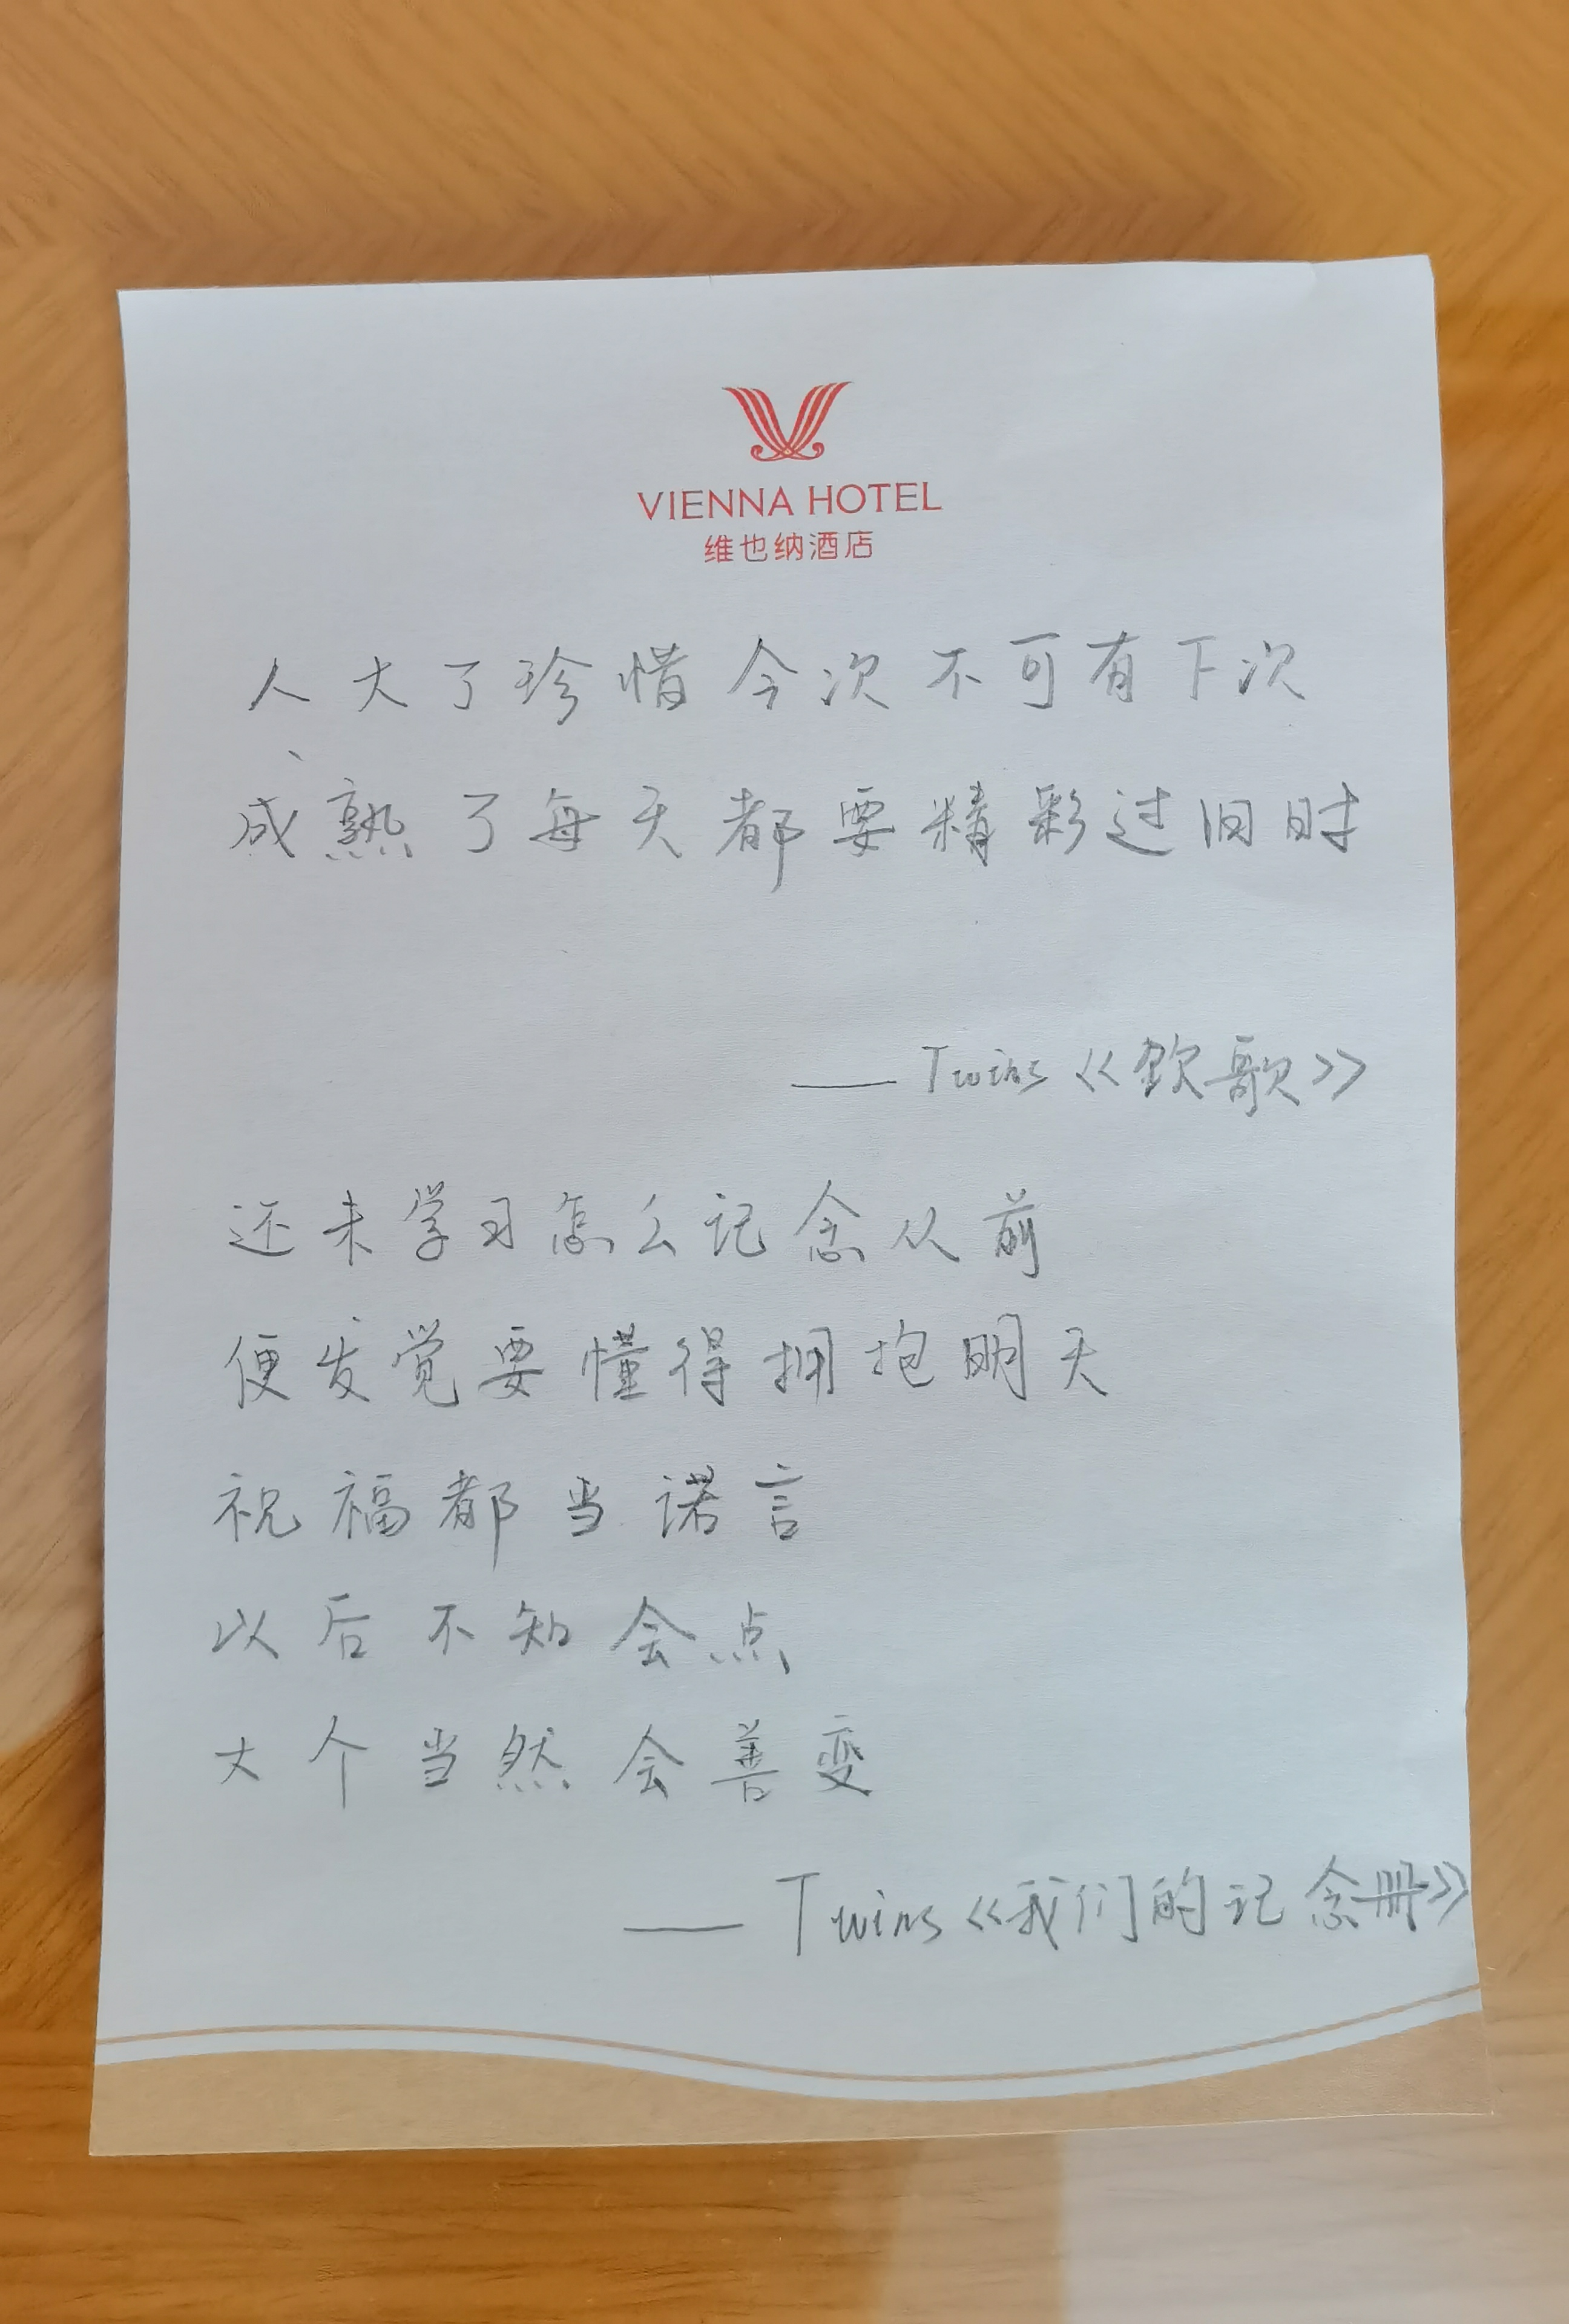 VIENNA HOTEL
维也纳酒店
人大了珍惜今次不可有下次
成熟了每天都要精彩过旧时
—— Twins《飲歌》
还未学习怎么记念从前
便发觉要懂得拥抱明天
祝福都当诺言
以后不知会点
大个当然会善变
—— Twins《我们的记念册》